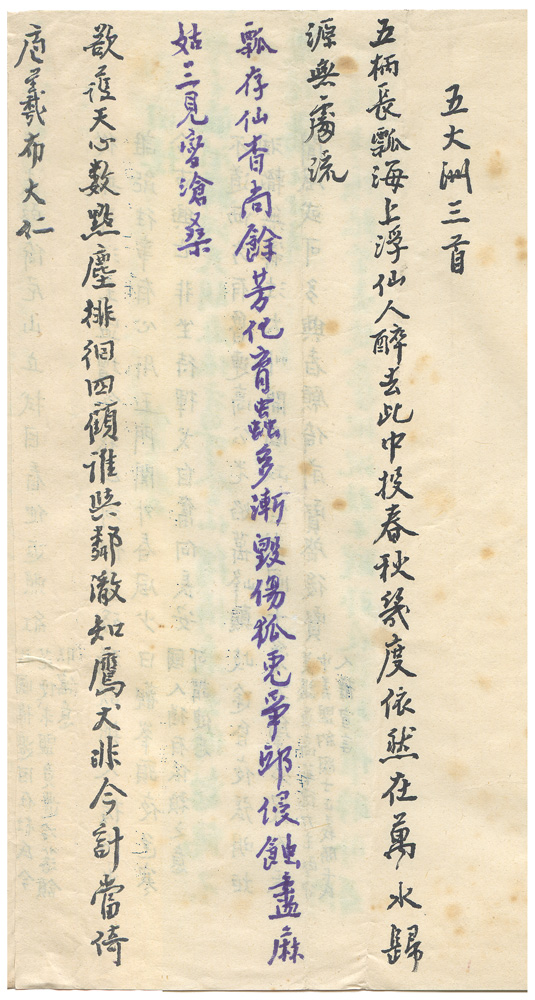 五大洲三首
五柄長瓢海上浮仙人醉去此中投春秋幾度依然在萬水歸
源無處流
瓢存仙杳尚餘芳化育蟲多漸毀傷狐兎爭邱侵蝕盡麻
姑三見會滄桑
欲蓏天心數點塵排徊四顧誰與鄰澈知鷹犬非今計當倚
庖羲布大仁